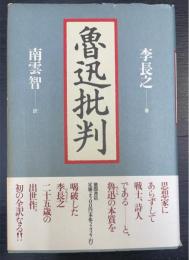 魯迅批判
李長之
著
南雲智
訳
思想家に
あらずして
戦士、詩人
である──と、
魯迅の本質を
喝破した
李長之
二十五歳の
出世作、
初の全訳なる!!